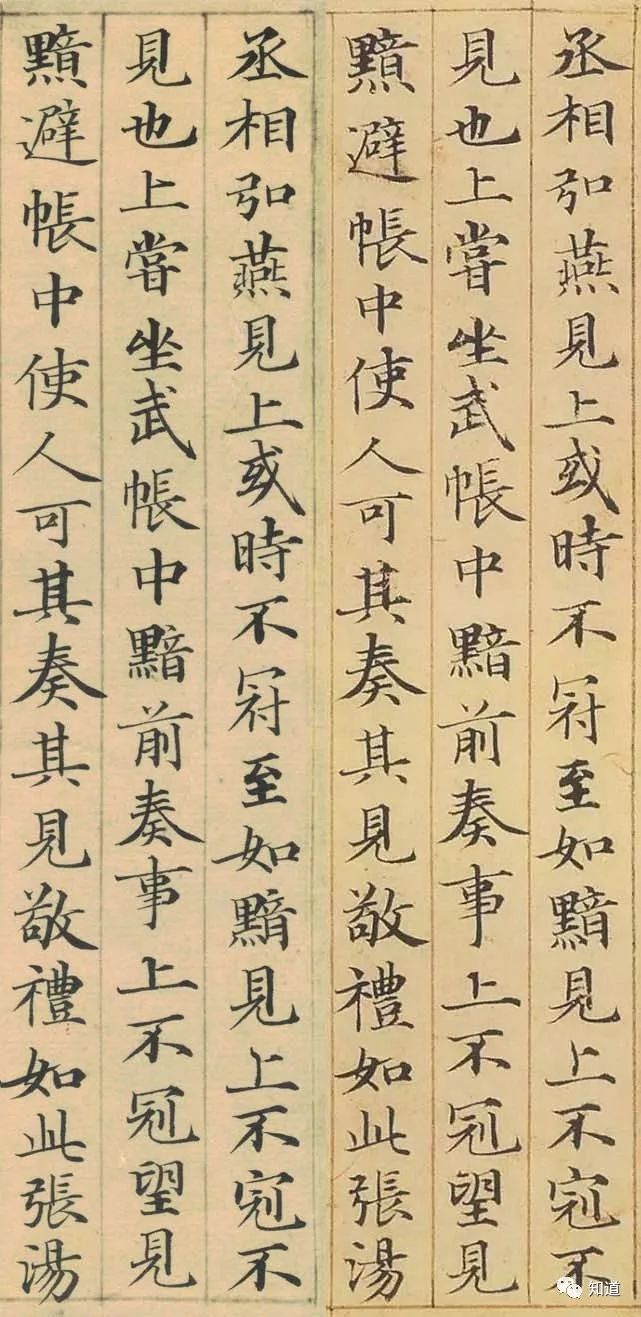 丞相弘燕見上或時不冠至如黯見上不冠不
見也上嘗坐武帳中黯前奏事上不冠望見
黯避帳中使人可其奏其見敬禮如此張湯
丞相弘燕見上或時不冠至如黯見上不冠不
見也上嘗坐武帳中黯前奏事上不冠望見
黯避帳中使人可其奏其見敬禮如此張湯
知道